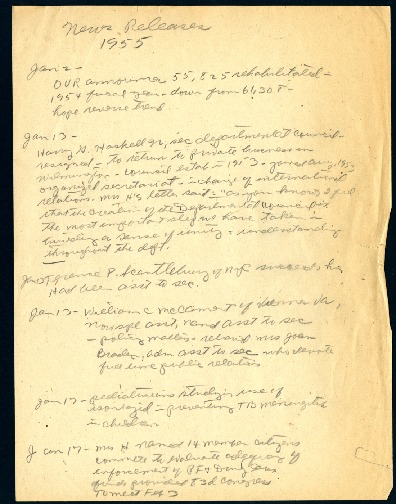 News Releases
1955
Jan 2 -
OVR announces 55,825 rehabilitated -
1954 fiscal year - down from 61,308 -
hope reverse trend
Jan 13 -
Harry G. Haskell Jr, sec department council -
resigned - to return to private business in
Wilmington - council estab in 1953 - joined Aug, 1953
organized secretariat - in charge of international
relations. Mrs H's letter said: "as you know I feel
that the creation of the Departmental Council is
the most important step we have taken in
building a sense of unity & understanding
throughout the dept.
Jan 13 P. Scantlebury of NY succeeds, he
Had been asst to sec.
Jan 13 - William C. McCament of Vienna Va,
asst, named asst to sec
- policy matters - relieved Mrs Joan
Braden, adm asst to sec - who devote
full time public relations
Jan 17 - pediatricians study in use of
isoniazid - preventing TB meningitis
in children
Jan 17 - Mrs H named 14 member citizens
committee to evaluate adequacy of
enforcement of PF & Drug laws
funds provided 83d Congress
To meet Feb 3